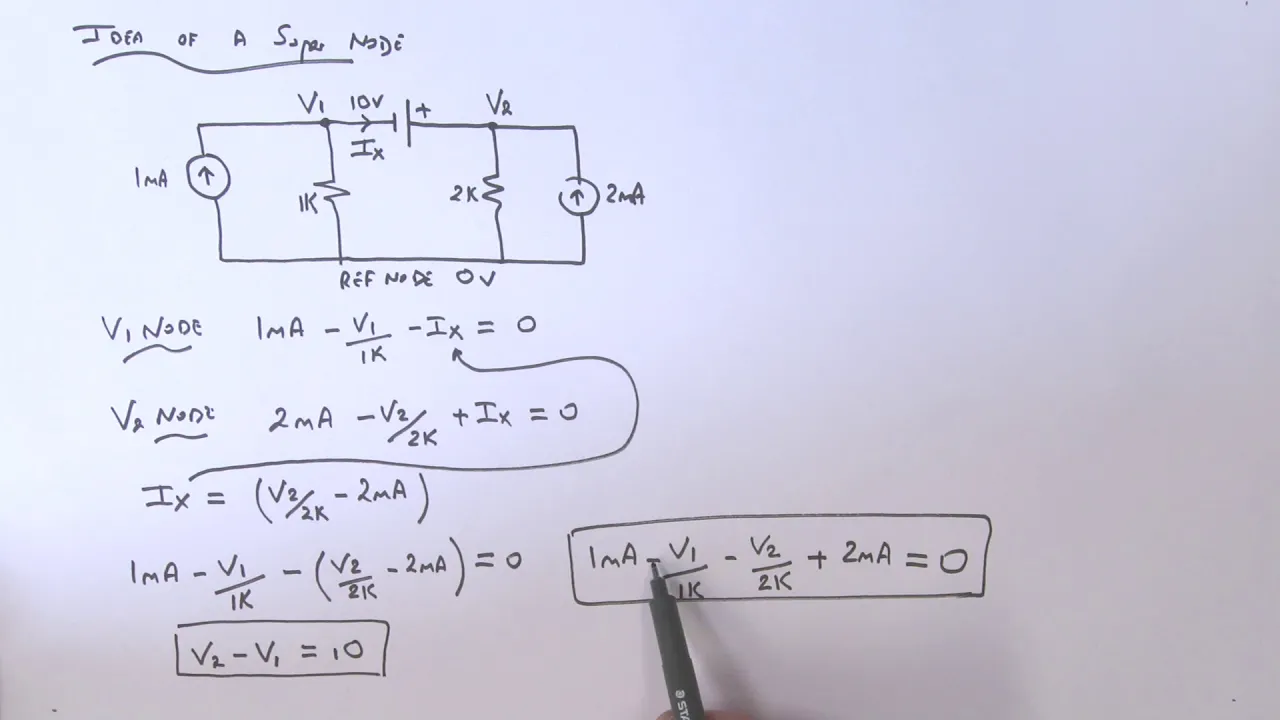 IDEA OF A Super NODE
V1 10V + V2
Ix
1mA 1K 2K 2mA
REF NODE 0V
V1 NODE 1mA - V1/1K - Ix = 0
V2 NODE 2mA - V2/2K + Ix = 0
Ix = (V2/2K - 2mA)
1mA - V1/1K - (V2/2K - 2mA) = 0
1mA - V1/1K - V2/2K + 2mA = 0
V2 - V1 = 10
STA